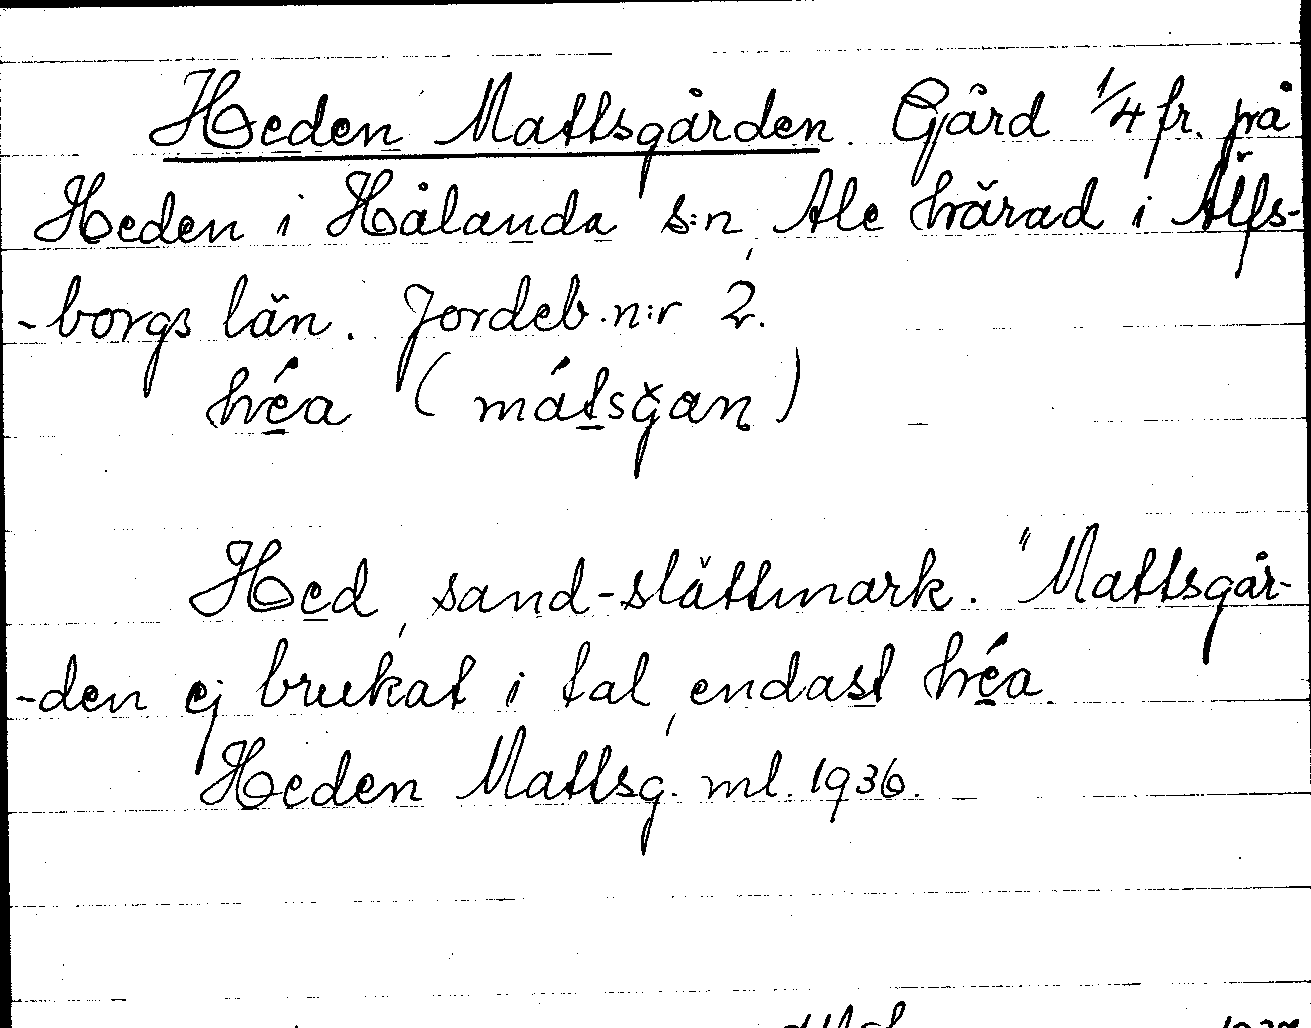 Heden Mattsgården. Gård 1/4 fr. på
Heden i Hålanda s:n, Ale härad i Älfs-
-borgs län. Jordeb.n:r 2.
héa (mátsgan)
Hed, sand-slättmark. "Mattsgår-
-den ej brukat i tal, endast héa.
Heden Mattsg. ml. 1936.